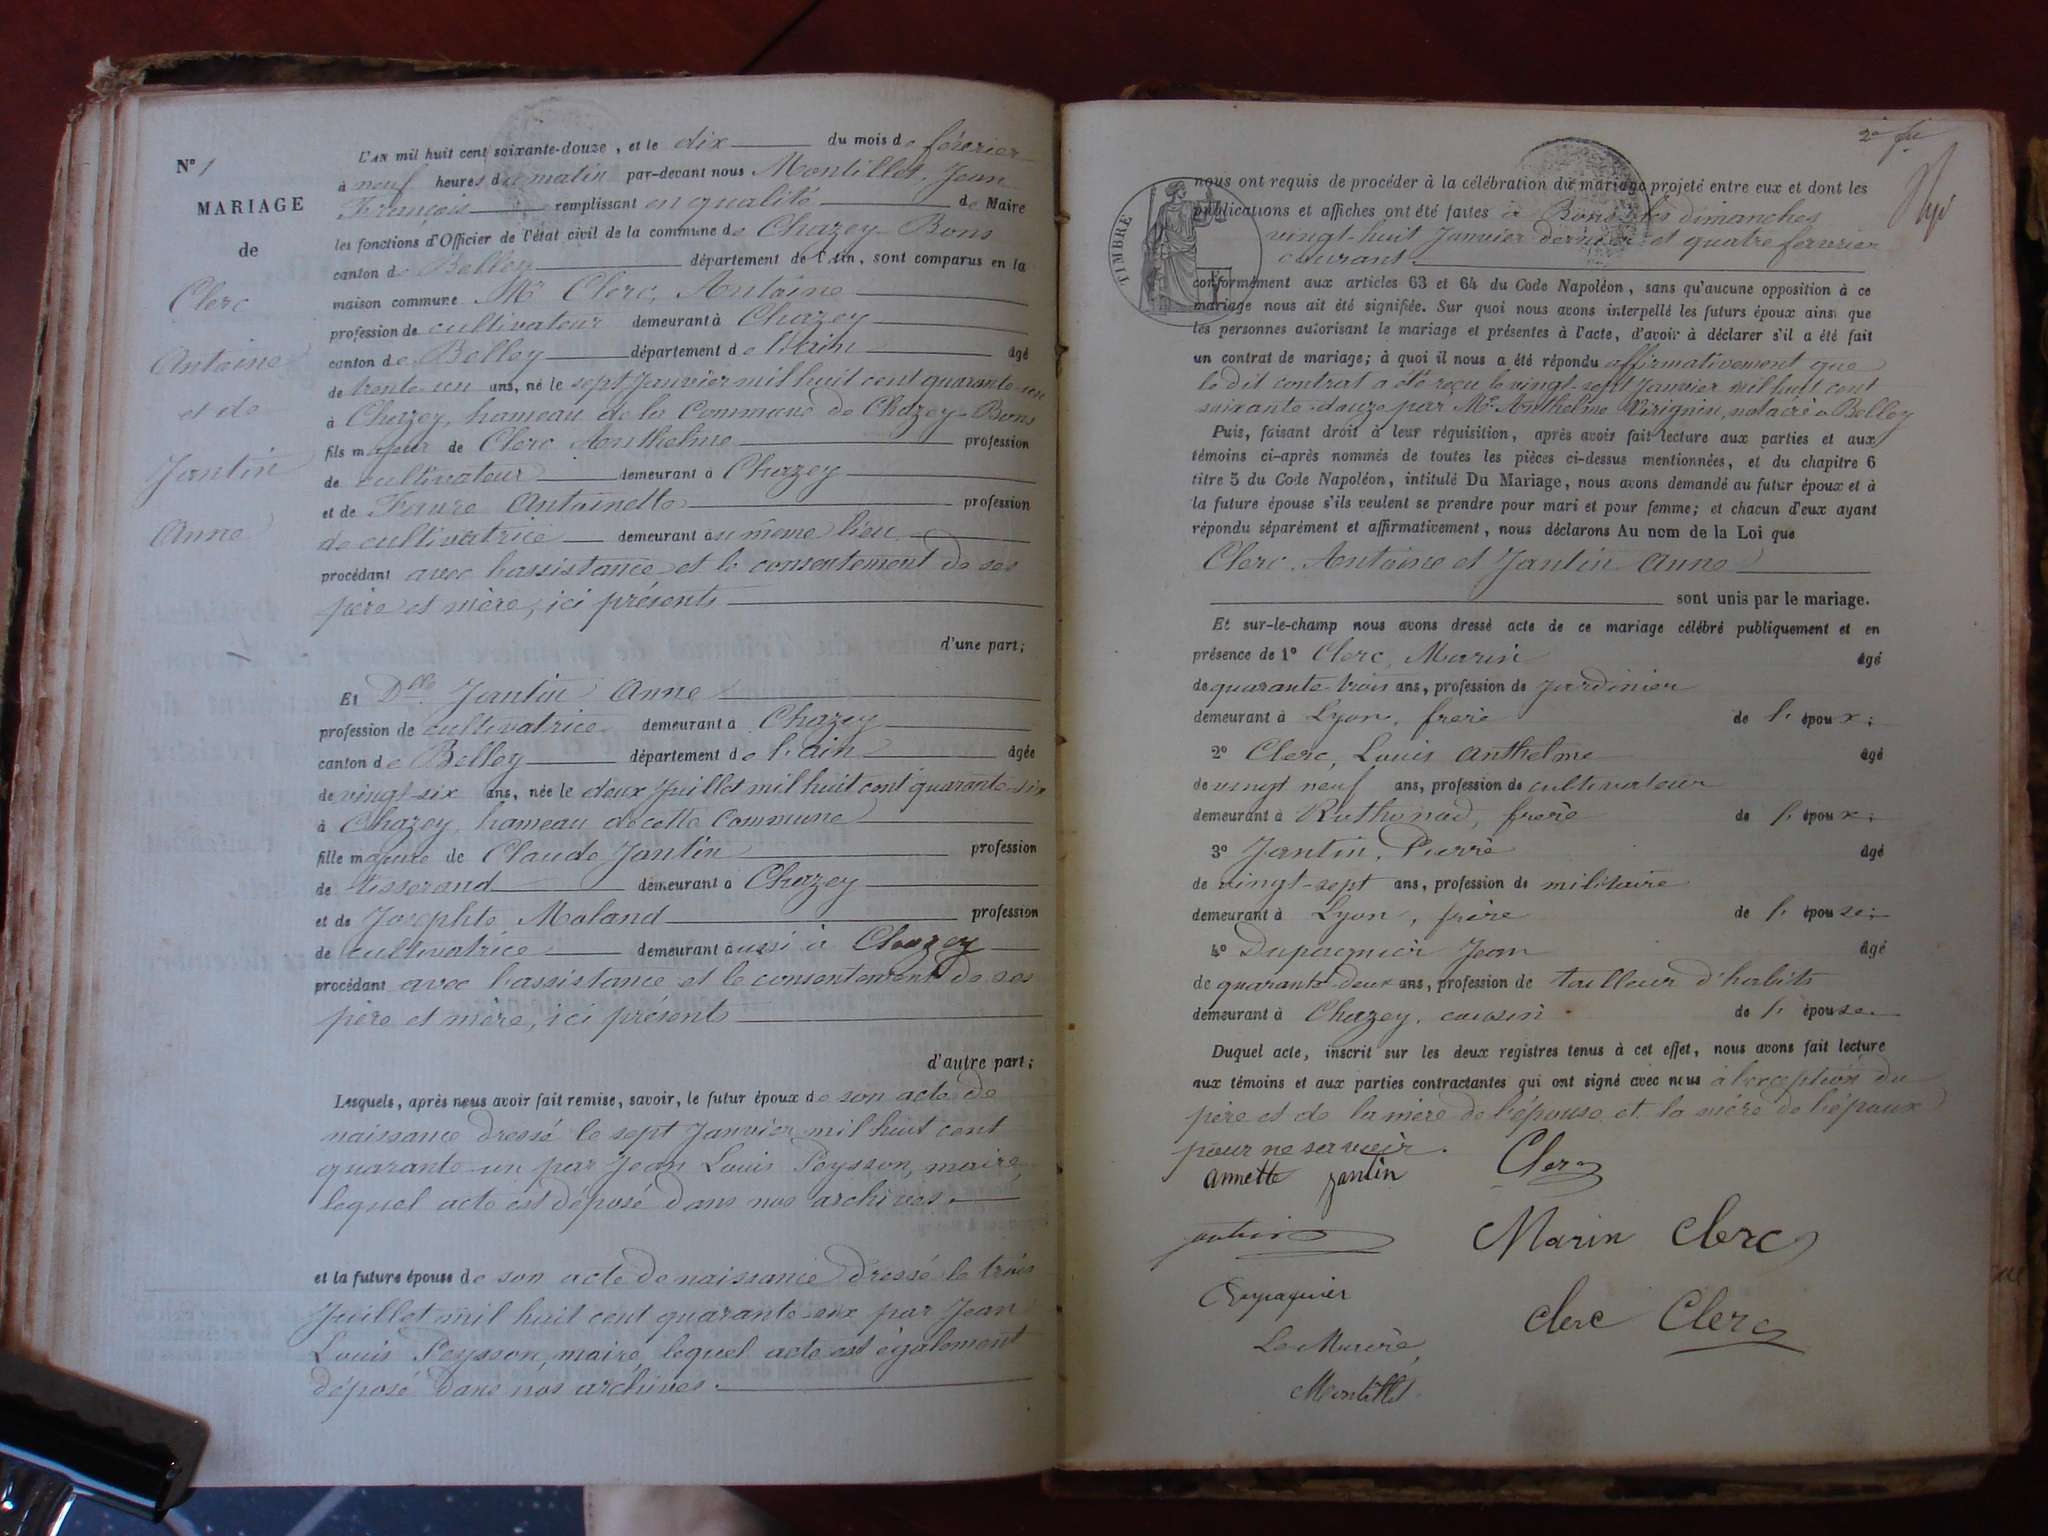 N° 1
MARIAGE
de
Clerc
Antoine
et de
Jantin
Anne
L'AN mil huit cent soixante-douze, et le dix du mois de février
à neuf heures du matin par-devant nous Montillet, Jean
François remplissant en qualité de Maire
les fonctions d'Officier de l'état civil de la commune de Chazey-Bons
canton de Belley département de l'Ain, sont comparus en la
maison commune Mr Clerc, Antoine
profession de cultivateur demeurant à Chazey
canton de Belley département de l'ain âgé
de trente-un ans, né le sept Janvier mil huit cent quarante-un
à Chazey, hameau de la Commune de Chazey-Bons
fils majeur de Clerc Anthelme profession
de cultivateur demeurant à Chazey
et de Faure Antoinette profession
de cultivatrice demeurant au même lieu
procédant avec l'assistance et le consentement de ses
père et mère, ici présents
d'une part;
Et Dlle Jantin Anne
profession de cultivatrice demeurant à Chazey
canton de Belley département de l'ain âgée
de vingt-six ans, née le deux Juillet mil huit cent quarante-six
à Chazey, hameau de cette Commune
fille majeure de Claude Jantin profession
de tisserand demeurant à Chazey
et de Josephte Moland profession
de cultivatrice demeurant aussi à Chazey
procédant avec l'assistance et le consentement de ses
père et mère, ici présents
d'autre part;
Lesquels, après nous avoir fait remise, savoir, le futur époux de son acte de
naissance dressé le sept Janvier mil huit cent
quarante-un par Jean Louis Peysson, maire,
lequel acte est déposé dans nos archives.
et la future épouse de son acte de naissance dressé le trois
Juillet mil huit cent quarante-six par Jean
Louis Peysson, maire, lequel acte est également
déposé dans nos archives.
TIMBRE
nous ont requis de procéder à la célébration du mariage projeté entre eux et dont les
publications et affiches ont été faites à Bons les dimanches
vingt-huit Janvier dernier et quatre ferverier
courant
conformément aux articles 63 et 64 du Code Napoléon, sans qu'aucune opposition à ce
mariage nous ait été signifiée. Sur quoi nous avons interpellé les futurs époux ainsi que
les personnes autorisant le mariage et présentes à l'acte, d'avoir à déclarer s'il a été fait
un contrat de mariage; à quoi il nous a été répondu affirmativement que
le dit contrat a été reçu le vingt-sept Janvier mil huit cent
soixante-douze par Me Anthelme Virignin, notaire à Belley
Puis, faisant droit à leur réquisition, après avoir fait lecture aux parties et aux
témoins ci-après nommés de toutes les pièces ci-dessus mentionnées, et du chapitre 6
titre 5 du Code Napoléon, intitulé Du Mariage, nous avons demandé au futur époux et à
la future épouse s'ils veulent se prendre pour mari et pour femme; et chacun d'eux ayant
répondu séparément et affirmativement, nous déclarons Au nom de la Loi que
Clerc, Antoine et Jantin Anne
sont unis par le mariage.
Et sur-le-champ nous avons dressé acte de ce mariage célébré publiquement et en
présence de 1° Clerc, Marin âgé
de quarante-trois ans, profession de Jardinier
demeurant à Lyon, frère de l'époux;
2° Clerc, Louis Anthelme âgé
de vingt neuf ans, profession de cultivateur
demeurant à Ruthonod, frère de l'époux;
3° Jantin, Pierre âgé
de vingt-sept ans, profession de militaire
demeurant à Lyon, frère de l'épouse;
4° Dupaquier Jean âgé
de quarante-deux ans, profession de tailleur d'habits
demeurant à Chazey, cousin de l'épouse.
Duquel acte, inscrit sur les deux registres tenus à cet effet, nous avons fait lecture
aux témoins et aux parties contractantes qui ont signé avec nous à l'exception du
père et de la mère de l'épouse et la mère de l'époux
pour ne savoir.
annette jantin Clerc
jantin Marin Clerc
Dupaquier
clerc Clerc
Le Maire,
Montillet